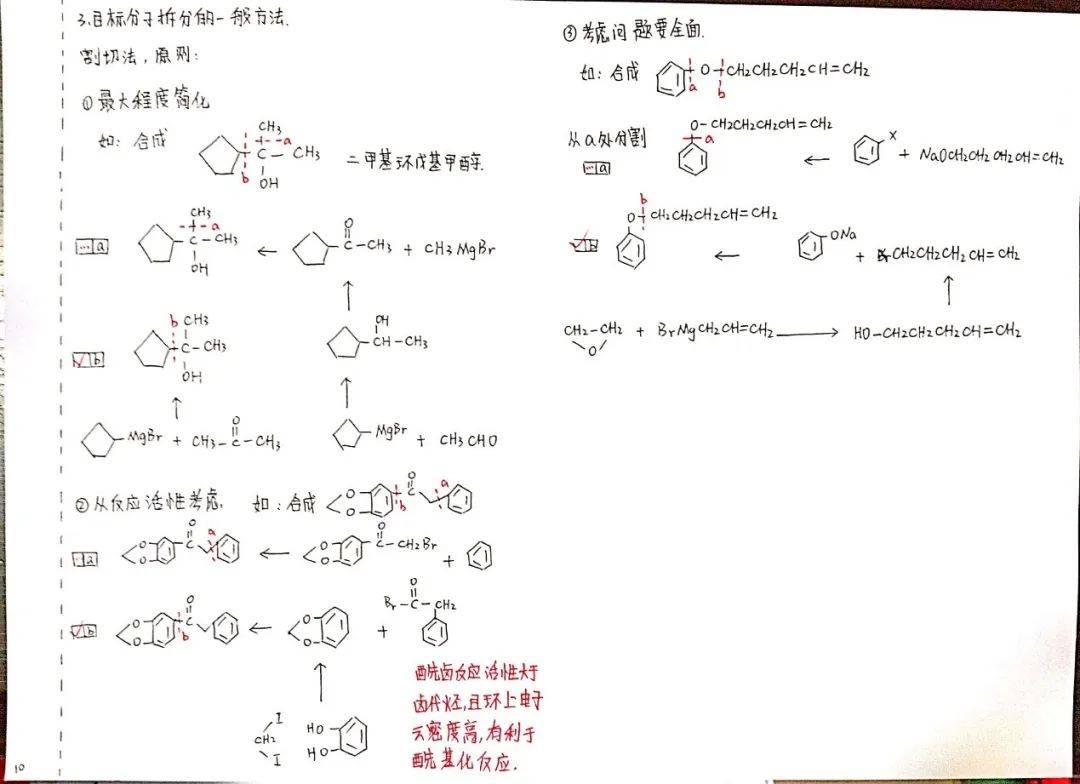 3.目标分子拆分的一般方法.
割切法,原则:
①最大程度简化
如: 合成
CH3
a
C-CH3
OH
b
二甲基环戊基甲醇.
a
CH3
a
C-CH3
OH
←
O
C-CH3 + CH3MgBr
↑
OH
CH-CH3
↑
MgBr + CH3CHO
b
b CH3
C-CH3
OH
↑
MgBr + CH3-C-CH3
O
②从反应活性考虑, 如:合成
O O
O
C
b
a
a
O O
O
C
a
←
O O
O
C-CH2Br
+
b
O O
O
C
b
←
O O
+
O
Br-C-CH2
↑
I
CH2
I
HO
HO
酰卤反应活性大于
卤代烃,且环上电子
云密度高,有利于
酰基化反应.
10
③考虑问题要全面.
如: 合成
O-CH2CH2CH2CH=CH2
a b
从a处分割
a
O-CH2CH2CH2CH=CH2
a
←
X
+ NaOCH2CH2CH2CH=CH2
b
b
O-CH2CH2CH2CH=CH2
←
ONa
+ CH2CH2CH2CH=CH2
↑
CH2-CH2
O
+ BrMgCH2CH=CH2 → HO-CH2CH2CH2CH=CH2